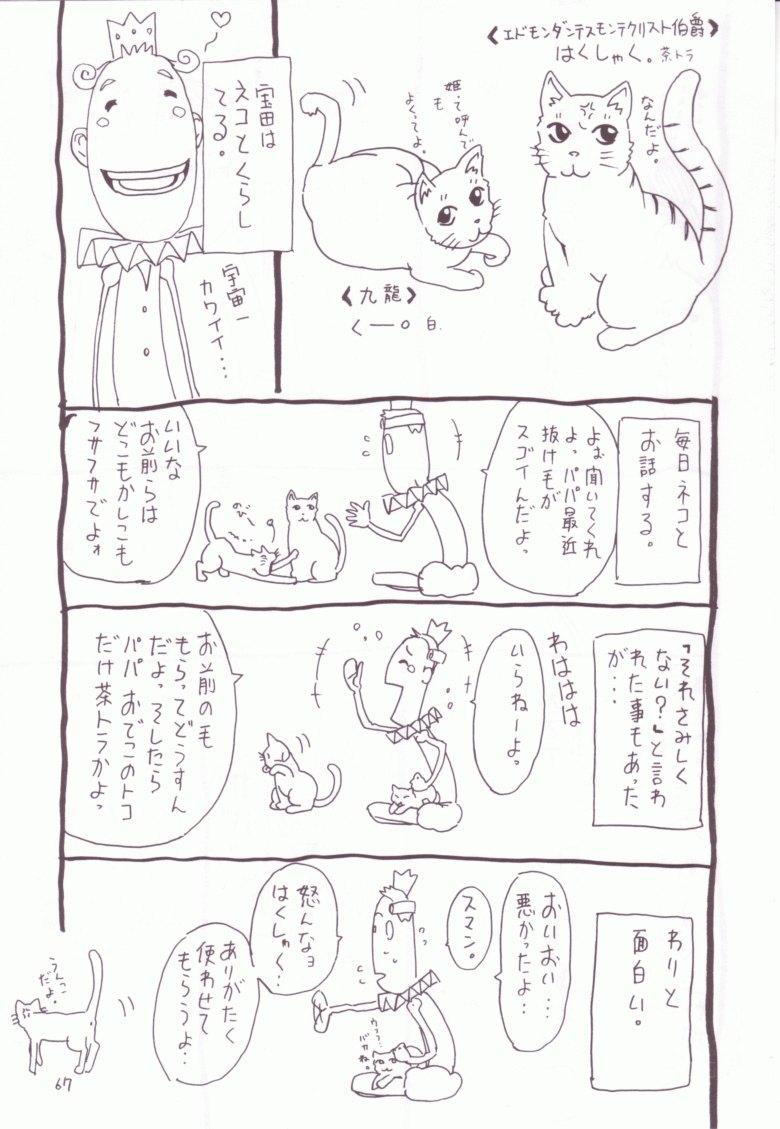 《エドモンダンテスモンテクリスト伯爵》
はくしゃく。茶トラ
なんだよ。
姫って呼んで
も
よくってよ。
《九龍》
くーロ 白.
宝田は
ネコとくらし
てる。
宇宙一
カワイイ…
毎日ネコと
お話する。
よぉ聞いてくれ
よっパパ最近
抜け毛が
スゴイんだよっ
いいな
お前らは
どこもかしこも
フサフサでよォ
「それさみしく
ない？」と言わ
れた事もあった
が…
わははは
いらねーよっ
お前の毛
もらってどうすん
だよっそしたら
パパおでこのトコ
だけ茶トラかよっ
わりと
面白い。
おいおい…
悪かったよ…
スマン。
怒んなョ
はくしゃく…
ありがたく
使わせて
もらうよ…
バカね。
うんこ
だよ。
67